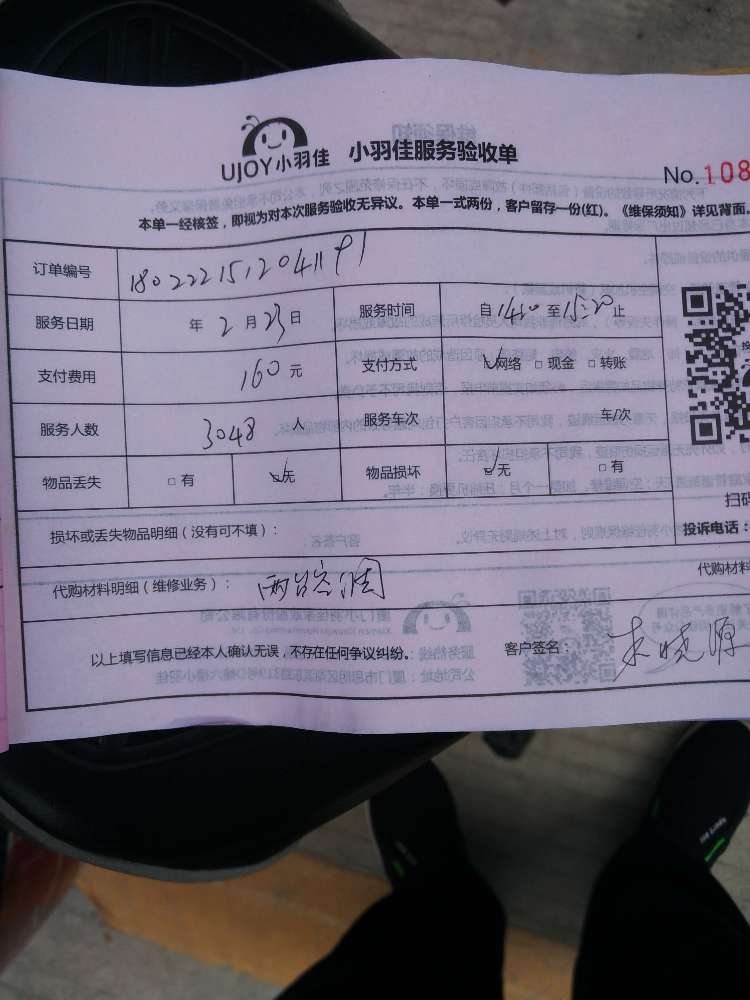 UJOY小羽佳 小羽佳服务验收单
No.108
本单一经核签，即视为对本次服务验收无异议。本单一式两份，客户留存一份(红)。《维保须知》详见背面。
订单编号 1802221512041191
服务日期 年 2 月 23 日 服务时间 自 14:20 至 15:20 止
支付费用 160 元 支付方式 ☑网络 □现金 □转账
服务人数 3048 人 服务车次 车/次
物品丢失 □有 ☑无 物品损坏 ☑无 □有
扫码
损坏或丢失物品明细（没有可不填）：
投诉电话：
代购材料明细（维修业务）： 两台空调
代购材料
以上填写信息已经本人确认无误，不存在任何争议纠纷。 客户签名： 朱晓源